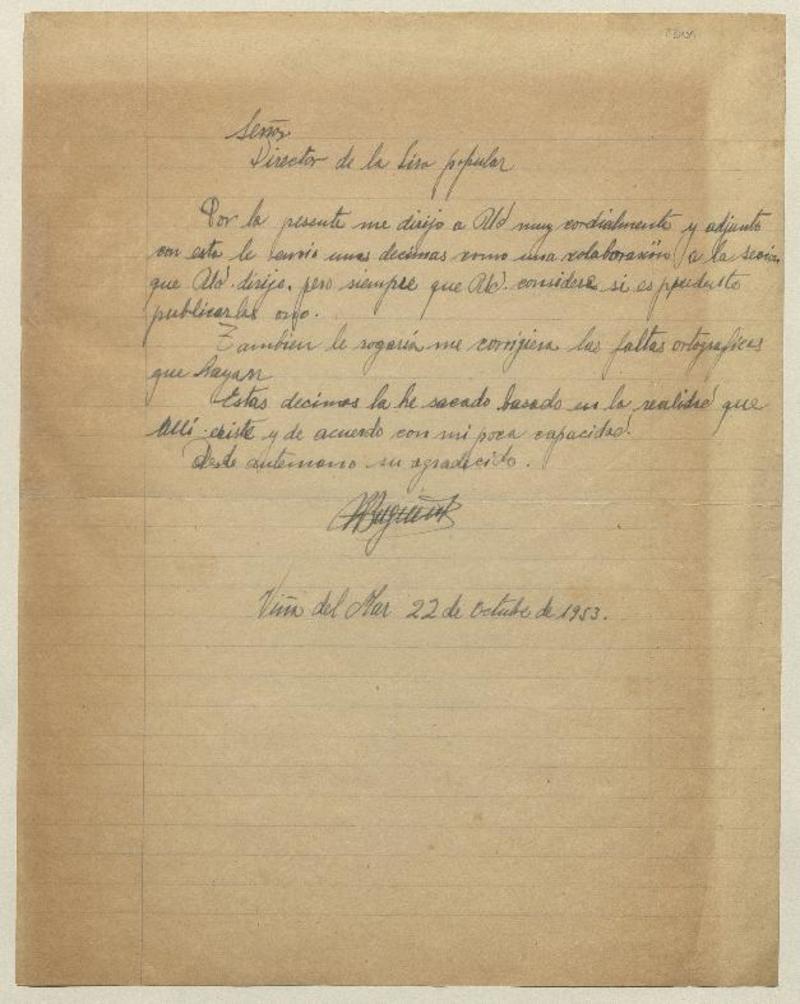 Señor
Director de la Lira popular
Por la pesente me dirijo a Ud muy cordialmente y adjunto
con esta le envio unas decimas como una colaboración a la
que Ud. dirije, pero siempre que Ud. considere si es
publicarlas o no.
Tambien le rogaría me corrijiera las faltas ortograficas
que hayan
Estas decimas la he sacado basado en la realidad que
Allí existe y de acuerdo con mi poca capacidad.
Desde antemano su agradecido.
Viña del Mar 22 de Octubre de 1953.